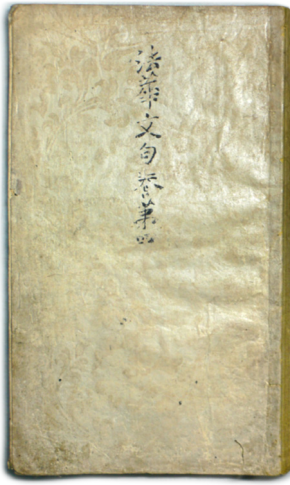 法華文句卷苐四